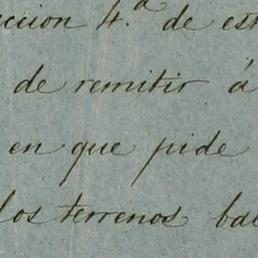 ección 4.ª de est
de remitir á
en que pide
los terrenos bal